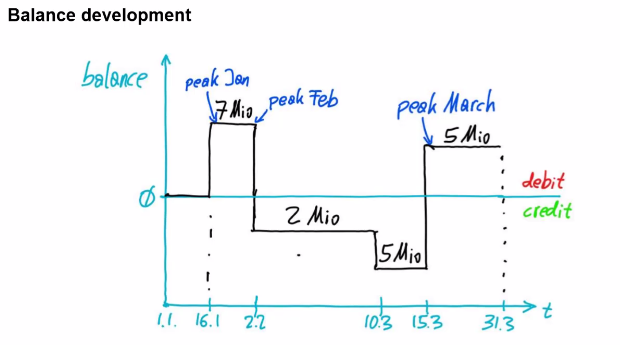 Balance development
balance
peak Jan
7 Mio
peak Feb
peak March
5 Mio
debit
Ø
credit
2 Mio
5 Mio
1.1. 16.1 2.2 10.3 15.3 31.3 t